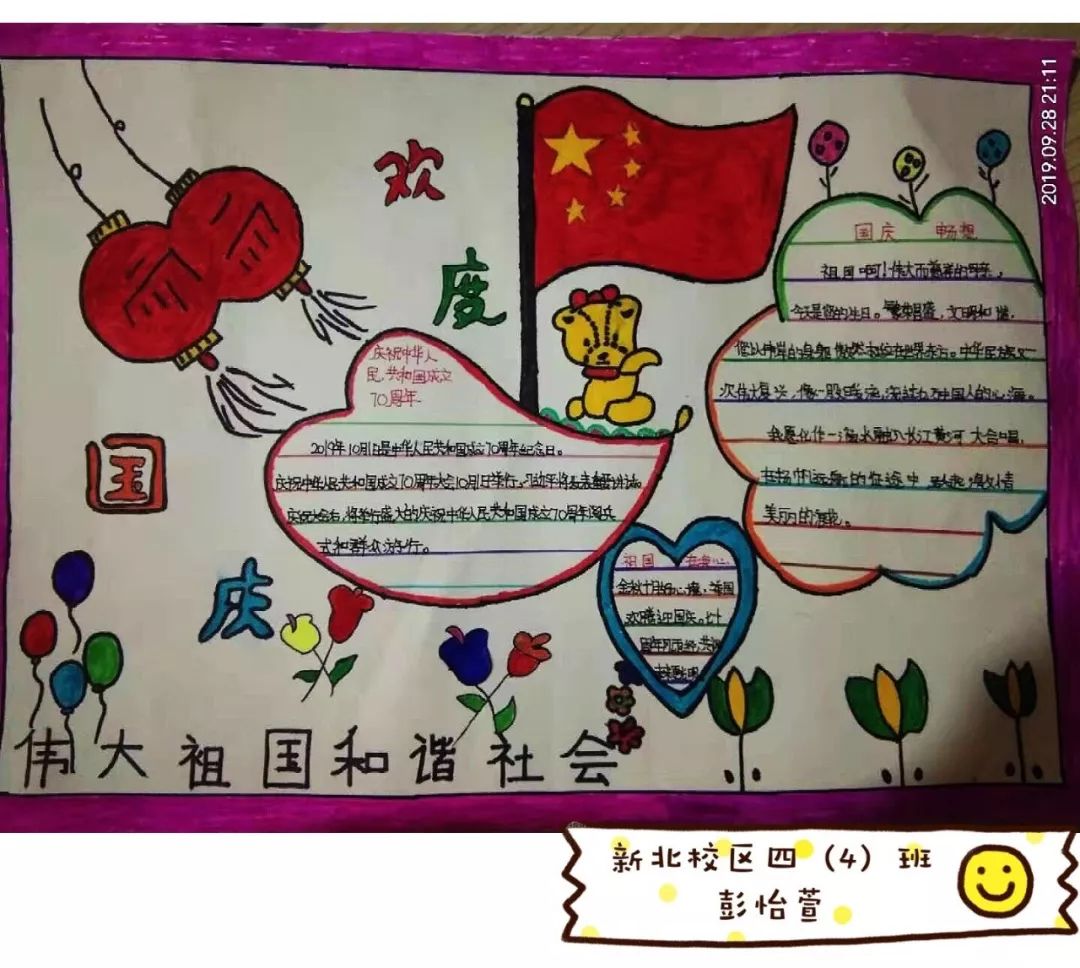 欢
度
国
庆
2019.09.28 21:11
庆祝中华人
民共和国成立
70周年
2019年10月1日是中华人民共和国成立70周年纪念日。
庆祝中华人民共和国成立70周年大会10月1日举行。习近平将发表重要讲话。
庆祝大会后，将举行盛大的庆祝中华人民共和国成立70周年阅兵
式和群众游行。
国庆 畅想
祖国啊！伟大而慈祥的母亲，
今天是您的生日。繁荣昌盛，文明和谐，
您以伟岸的身躯傲然屹立在世界东方。中华民族又一
次伟大复兴，像一股暖流，流过九万中国人的心海。
我愿化作一滴水融入长江黄河 大合唱，
在扬帆远航的征途中
美丽的浪花。
祖国
金秋十月好心境，
欢腾迎国庆。七十
周年
伟大祖国和谐社会
新北校区四（4）班
彭怡萱